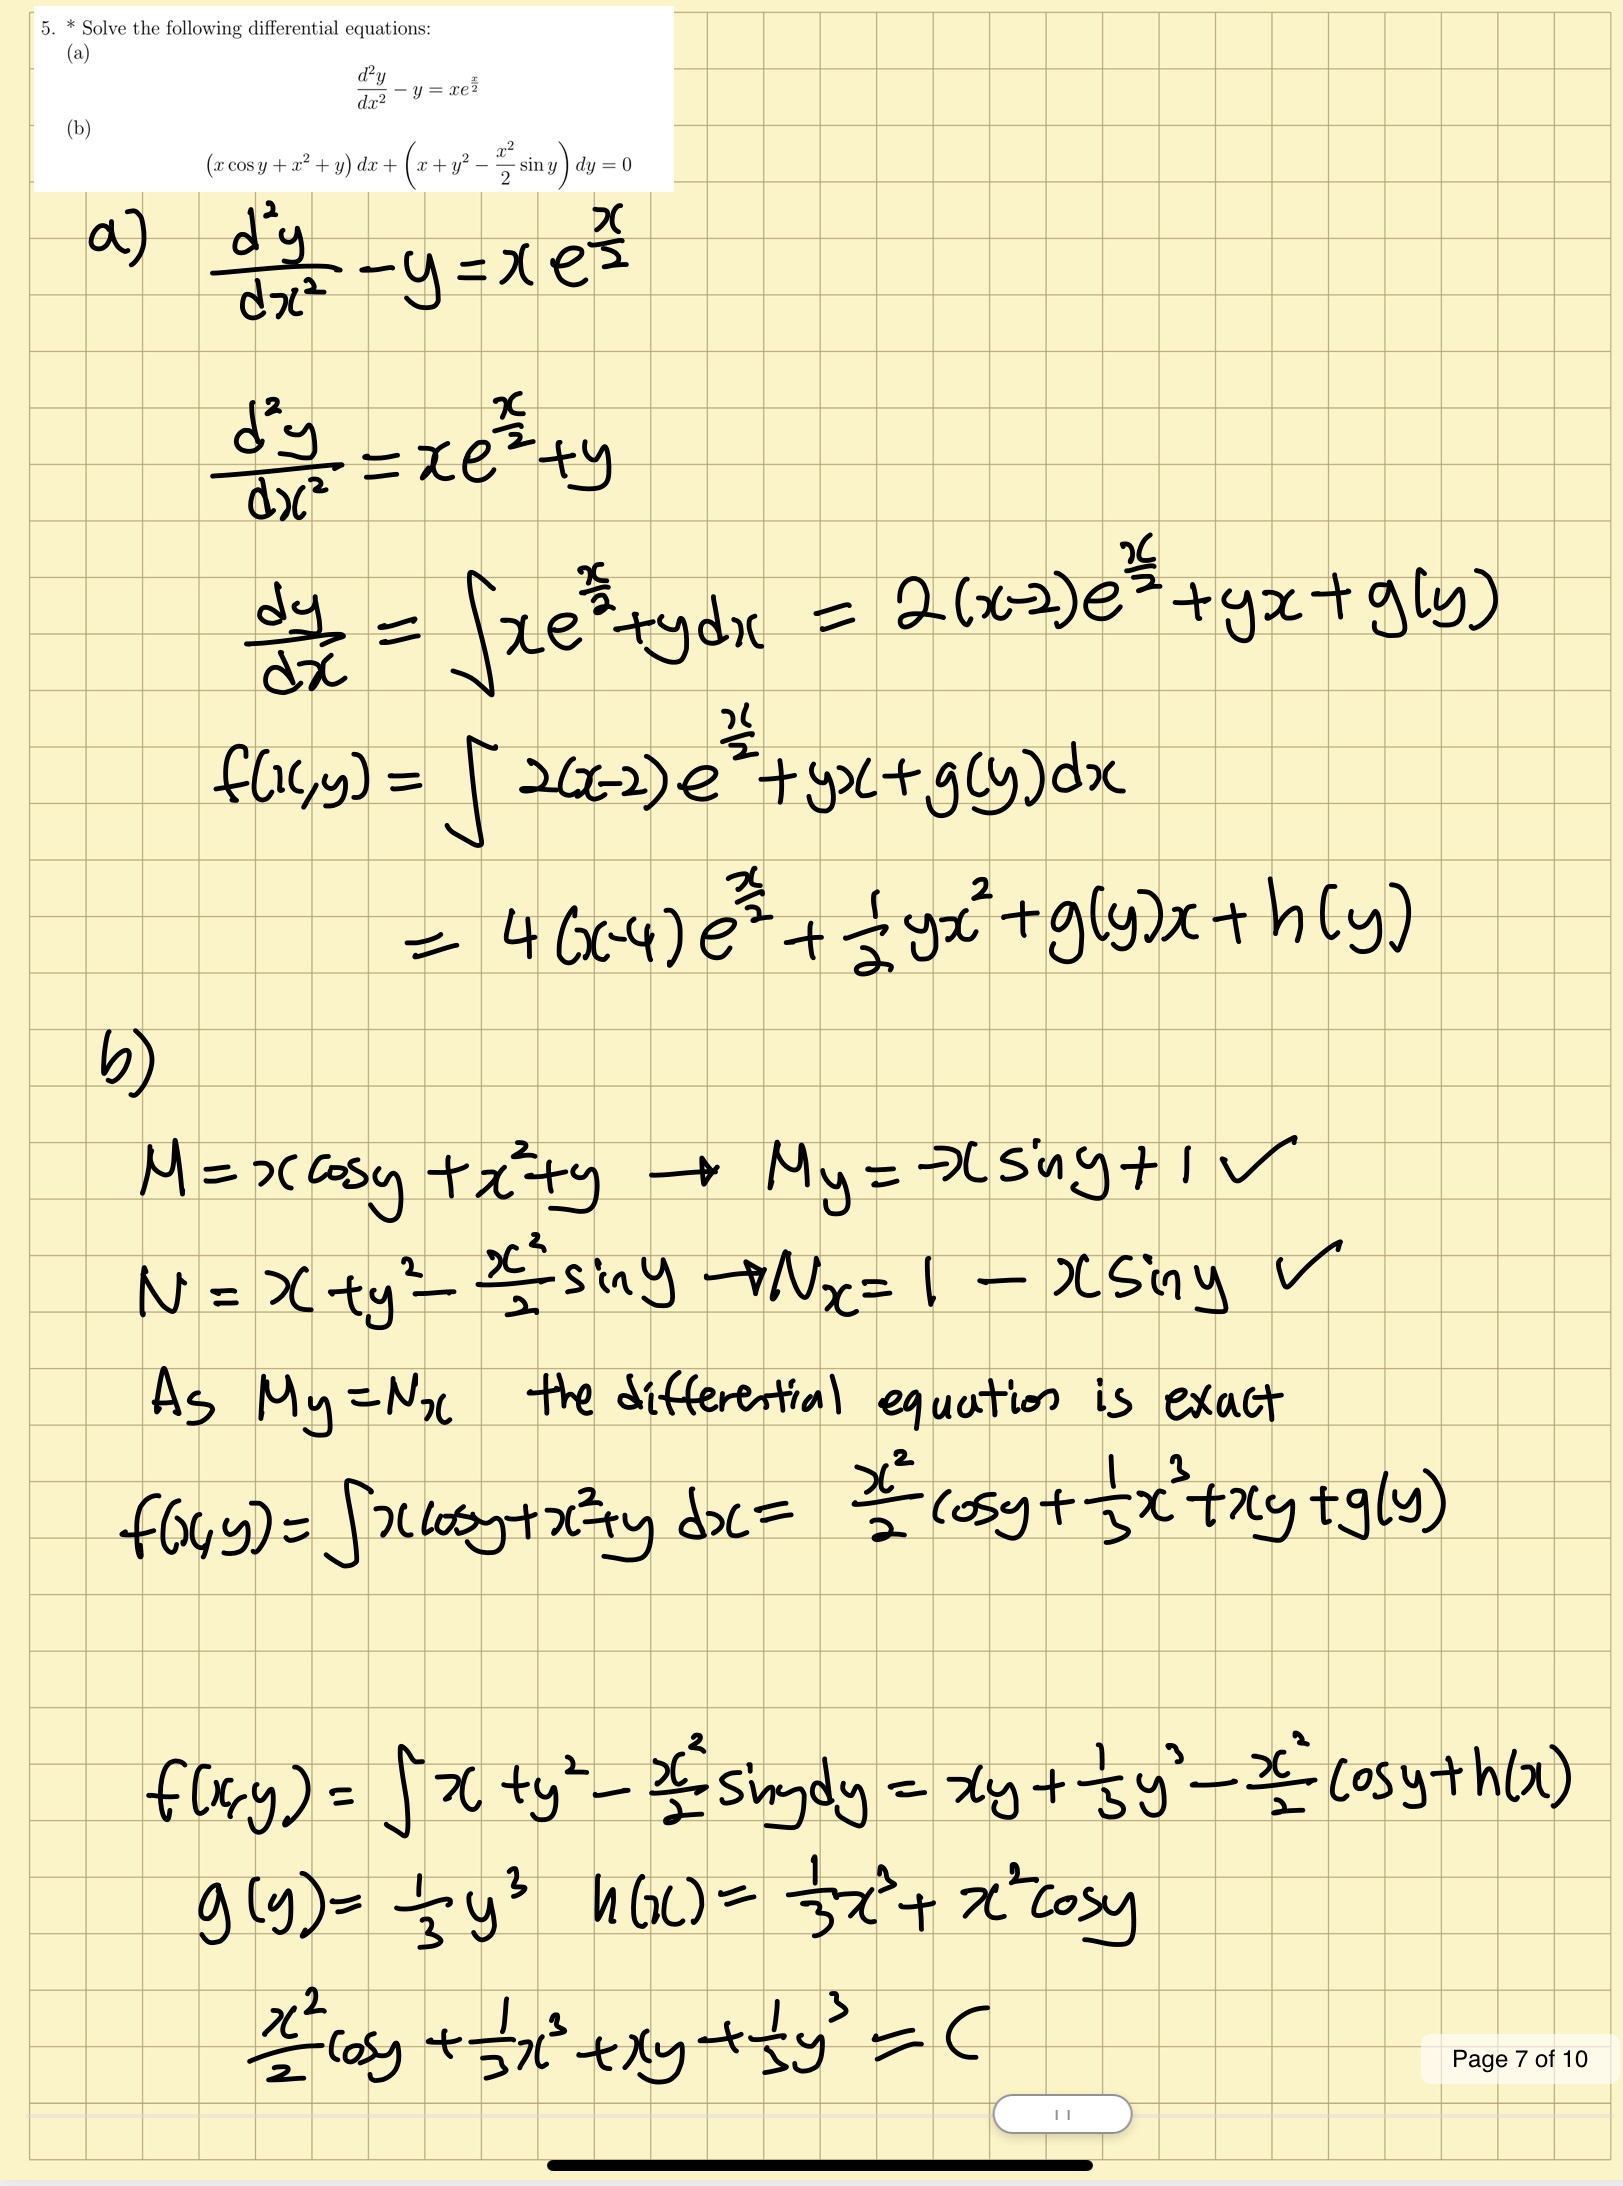 5. * Solve the following differential equations:
(a)
d²y/dx² − y = xe^(x/2)
(b)
(x cos y + x² + y) dx + (x + y² − x²/2 sin y) dy = 0
a) d²y/dx² − y = x e^(x/2)
d²y/dx² = xe^(x/2) + y
dy/dx = ∫xe^(x/2) + y dx = 2(x-2)e^(x/2) + yx + g(y)
f(x,y) = ∫ 2(x-2)e^(x/2) + yx + g(y) dx
= 4(x-4)e^(x/2) + 1/2 yx² + g(y)x + h(y)
b)
M = x cosy + x² + y → My = -x siny + 1 ✓
N = x + y² − x²/2 siny → Nx = 1 − x siny ✓
As My = Nx the differential equation is exact
f(x,y) = ∫x cosy + x² + y dx = x²/2 cosy + 1/3 x³ + xy + g(y)
f(x,y) = ∫ x + y² − x²/2 siny dy = xy + 1/3 y³ − x²/2 cosy + h(x)
g(y) = 1/3 y³ h(x) = 1/3 x³ + x² cosy
x²/2 cosy + 1/3 x³ + xy + 1/3 y³ = C
Page 7 of 10